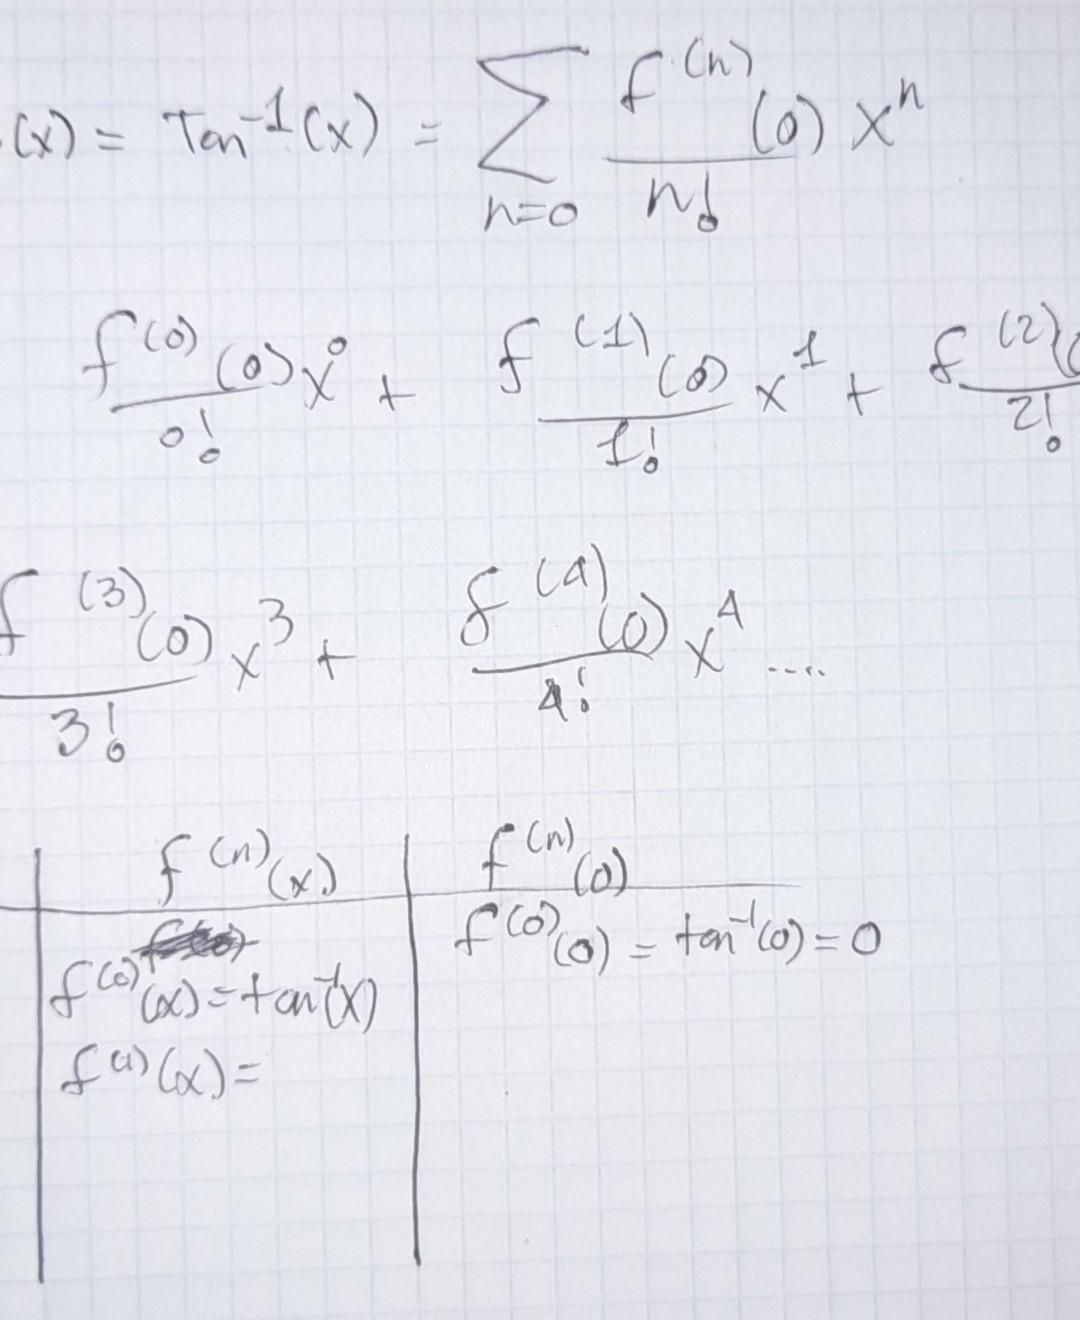 (x) = Tan⁻¹(x) = ∑ₙ₌₀ f⁽ⁿ⁾(0)/n! xⁿ
f⁽⁰⁾(0)/0! x⁰ + f⁽¹⁾(0)/1! x¹ + f⁽²⁾(/2!
f⁽³⁾(0)/3! x³ + f⁽⁴⁾(0)/4! x⁴ ....
f⁽ⁿ⁾(x) f⁽ⁿ⁾(0)
f⁽⁰⁾(x) = tan⁻¹(x) f⁽⁰⁾(0) = tan⁻¹(0) = 0
f⁽¹⁾(x) =